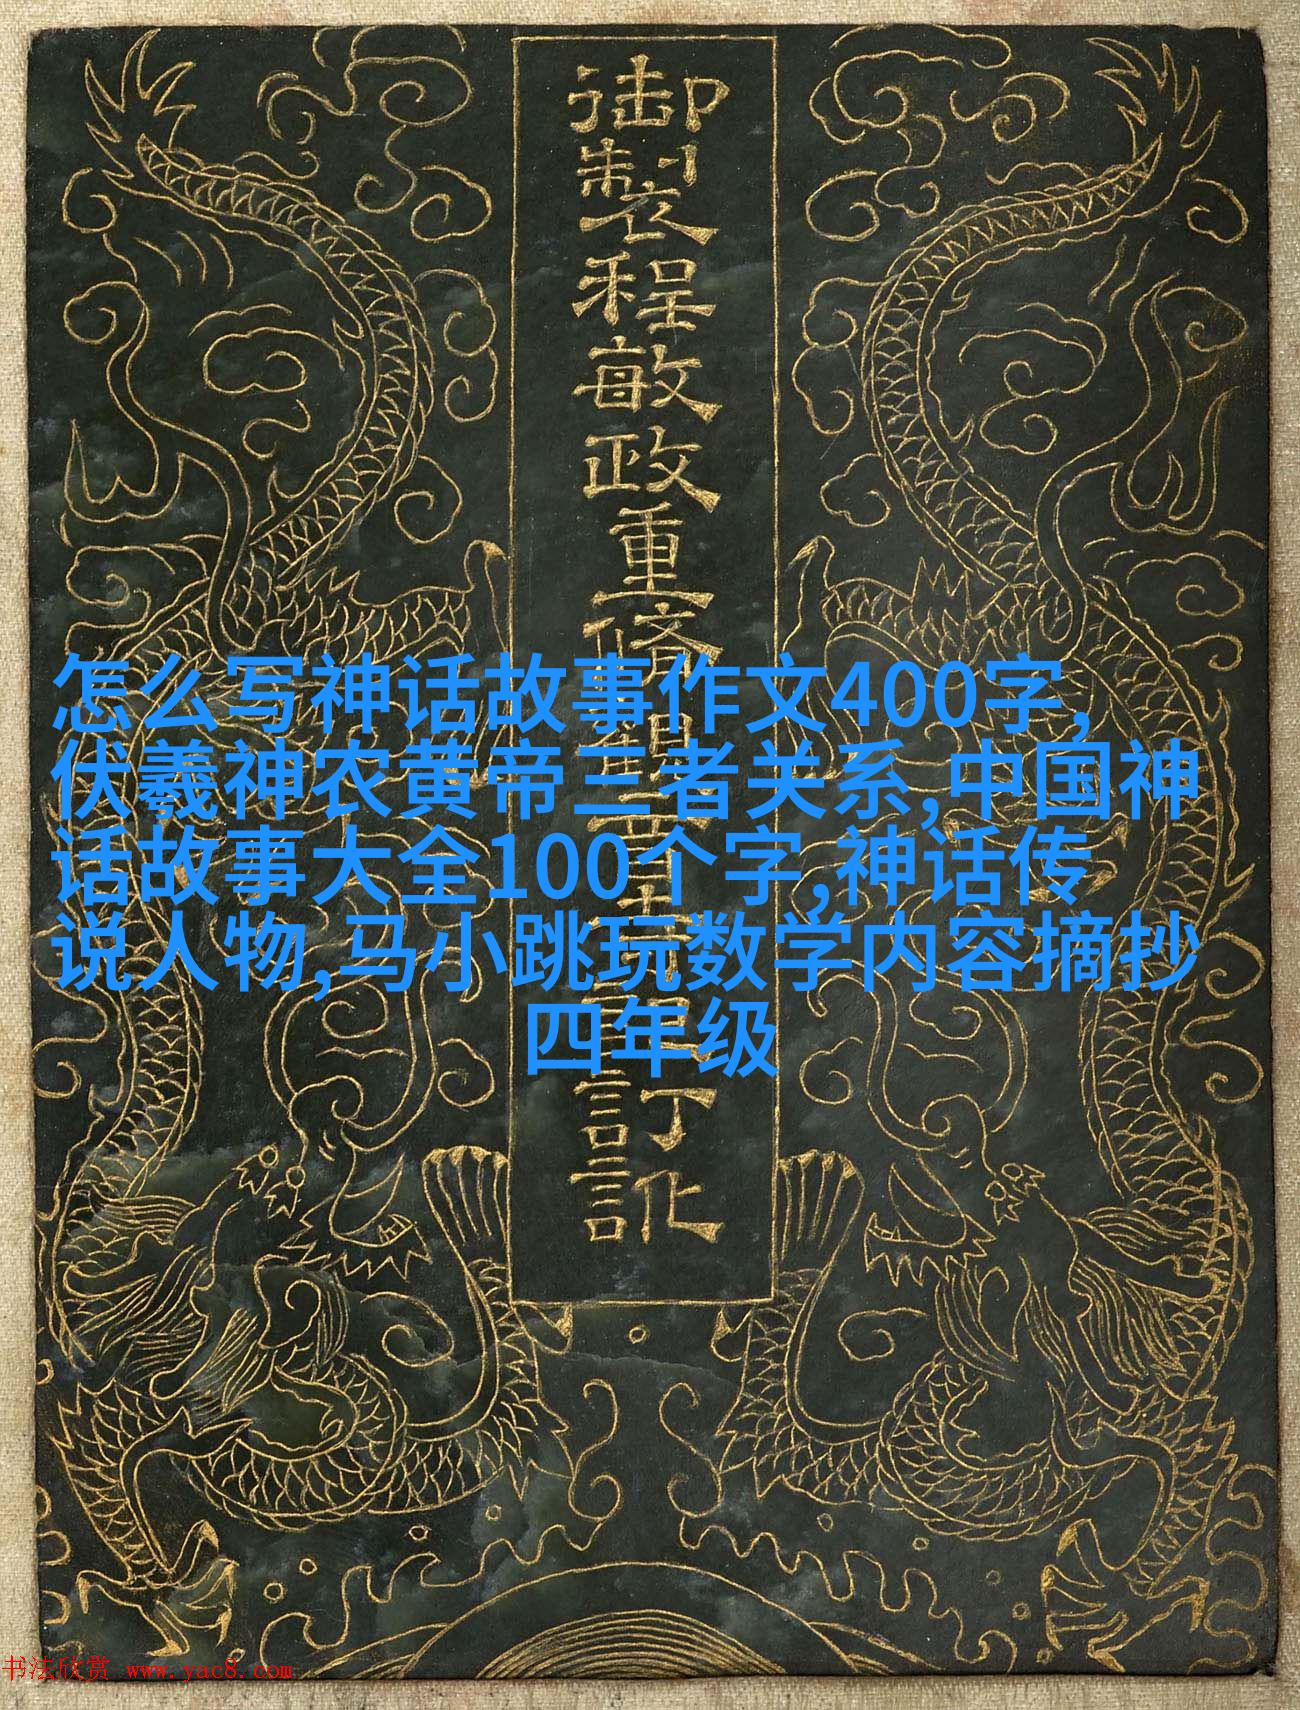 御製程敏政重脩
訂訛
怎么写神话故事作文400字,
伏羲神农黄帝三者关系,中国神
话故事大全100个字,神话传
说人物,马小跳玩数学内容摘抄
四年级
书法欣赏 www.yac8.com